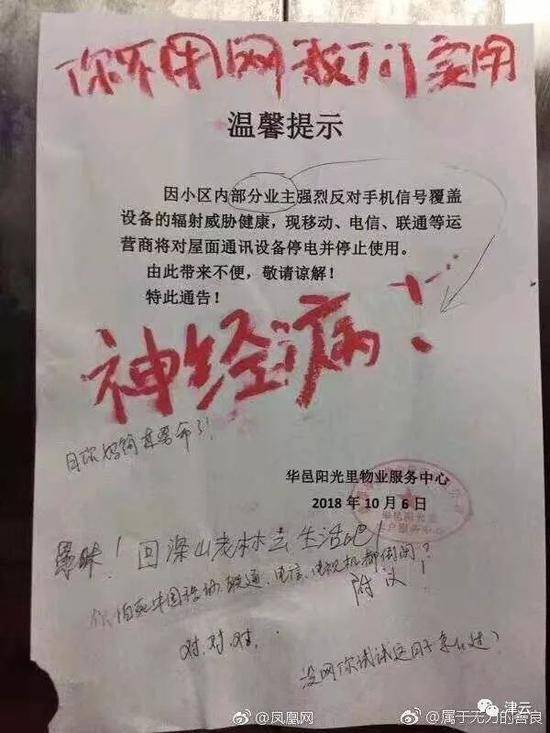 你不用网我们要用
温馨提示
因小区内部分业主强烈反对手机信号覆盖
设备的辐射威胁健康，现移动、电信、联通等运
营商将对屋面通讯设备停电并停止使用。
由此带来不便，敬请谅解！
特此通告！
神经病！
华邑阳光里物业服务中心
2018 年 10 月 6 日
愚昧！回深山老林去生活吧！
联通、电信、电视机都倒闭？
附议！
对.对.对.
没网你试试这日子怎么过？
津云
@凤凰网
@属于无力的善良